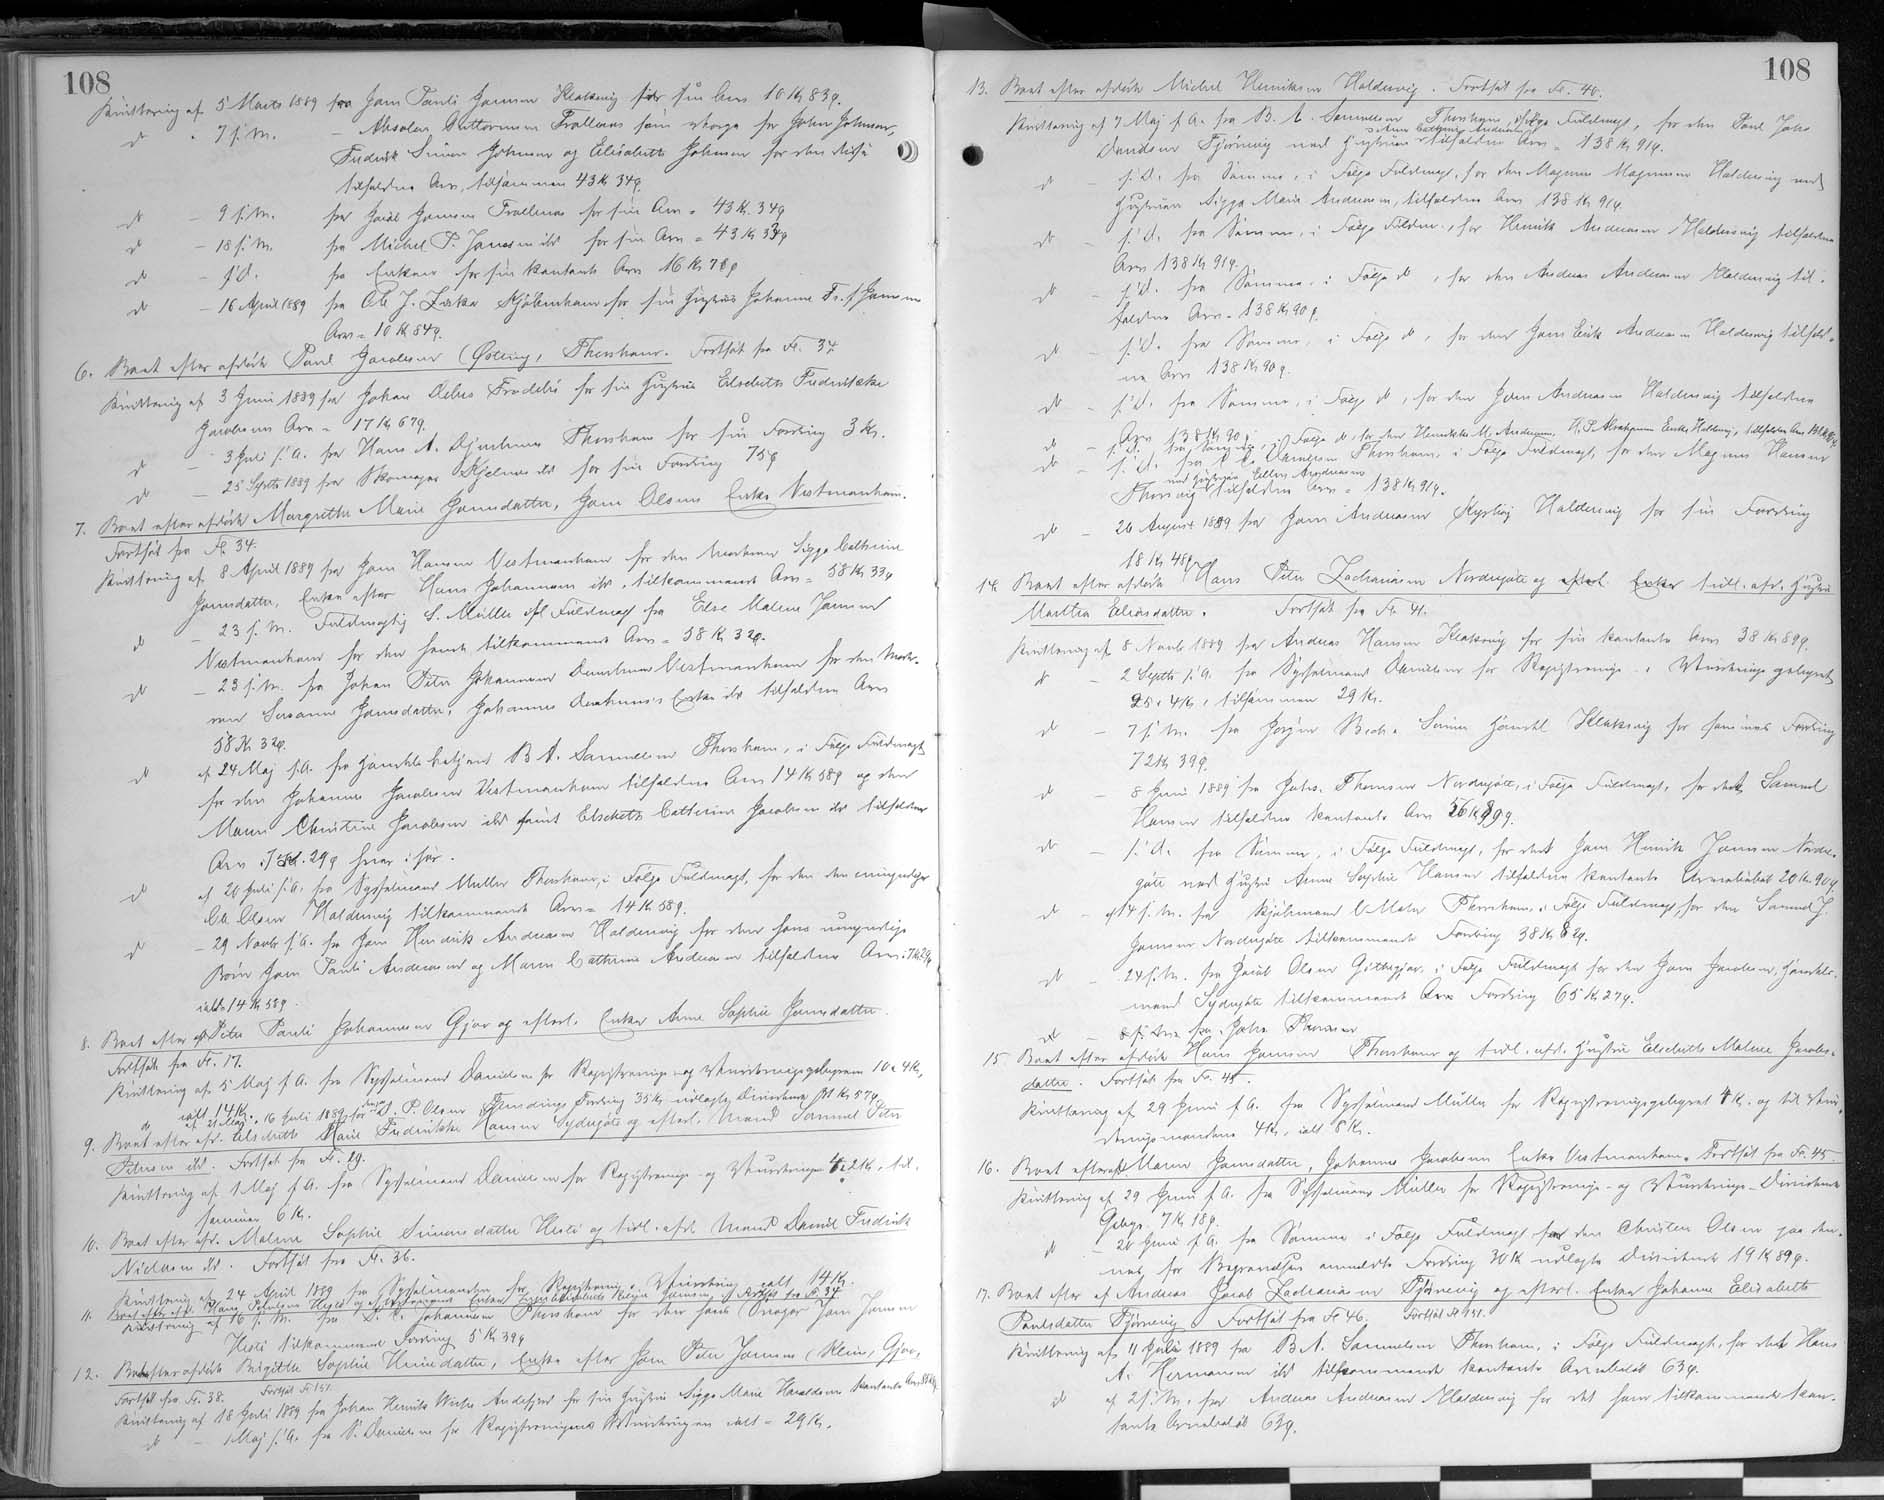 108
Kvittering af 5 Marts 1889 fra Joen Pauli Joensen Klaksvig for sin Arv 10 Kr 83 ø.
do - 7 s. M. - Absalon Guttormsen Trøllenæs som Værge for John Johnsen,
Fredrik Simon Johnsen og Elisabeth Johnsen for den disse
tilfaldne Arv, tilsammen 43 Kr 34 ø.
do - 9 s. M. fra Joen Joensen Trøllenæs for sin Arv = 43 Kr. 34 ø
do - 18 s. M. fra Michel P. Joensen ibd for sin Arv = 43 Kr 33 ø
do - s. D. fra Enken for sin kontante Arv 16 Kr 78 ø
do - 16 April 1889 fra Chr. J. Kjøbenhavn for sin Hustru Johanne Fr. f. Joensen
Arv = 10 Kr 84 ø.
6. Boet efter afdøde Poul Jacobsen (Østerø), Thorshavn. Fortsat fra Fl. 34
Kvittering af 3 Juni 1889 fra Johan Debes Frodebø for sin Hustru Elsebeth Fredrikke
Jacobsens Arv = 17 Kr 67 ø.
do - 3 Juli s. A. fra Hans A. Djurhuus Thorshavn for sin Fordring 3 Kr.
do - 25 Septb 1889 fra Skomager Kjelnes ibd for sin Fordring 75 ø
7. Boet efter afdøde Margrethe Marie Joensdatter, Joen Olsens Enke Vestmanhavn.
Fortsat fra Fl. 34.
Kvittering af 8 April 1889 fra Joen Hansen Vestmanhavn for den Moderen Sigge Cathrine
Joensdatter, Enke efter Hans Johannesen ibd. tilkommende Arv = 58 Kr 33 ø
do - 23 s. M. Fuldmægtig S. Müller ifl. Fuldmagt fra Else Malene Joensen
Vestmanhavn for den hende tilkommende Arv = 58 Kr 32 ø.
do - 23 s. M. fra Johan Peter Johannesen Vestmanhavn for den Mode-
ren Susanne Joensdatter, Johannes Enke ibd tilfaldne Arv
58 Kr 32 ø.
do af 24 Maj s. A. fra Handelsbetjent B A. Samuelsen Thorshavn, i Følge Fuldmagt
for den Johannes Jacobsen Vestmanhavn tilfaldne Arv 14 Kr 58 ø og den
Maren Christine Jacobsen ibd samt Elsebeth Cathrine Jacobsen ibd tilfaldne
Arv 7 Kr. 29 ø hver især.
do af 26 Juli s. A. fra Sysselmand Müller Thorshavn, i Følge Fuldmagt, for den den umyndige
Ole Olsen Haldersvig tilkommende Arv = 14 Kr 58 ø.
do - 29 Novbr s. A. fra Joen Hendrik Andreasen Haldersvig for den hans umyndige
Børn Joen Pauli Andreasen og Maren Cathrine Andreasen tilfaldne Arv: 7 Kr 29 ø
ialt 14 Kr 58 ø.
8. Boet efter afd Peter Pauli Johannesen Gjov og efterl. Enke Anne Sophie Joensdatter.
Fortsat fra Fl. 17.
Kvittering af 5 Maj s. A. fra Sysselmand Danielsen for Registrerings- og Vurderingsgebyrerne 10 + 4 Kr,
ialt 14 Kr.
do af 16 Juli 1889 for D. P. Olsen Fordring 35 Kr udlagte Dividende 31 Kr 57 ø.
9. Boet efter afd. Elsebeth Marie Fredrikke Hansen Sydrugøte og efterl. Mand Samuel Peter
Petersen ibd. Fortsat fra Fl. 29.
Kvittering af 1 Maj s. A. fra Sysselmand Danielsen for Registrerings- og Vurderingen 4 + 2 Kr, til-
sammen 6 Kr.
10. Boet efter afd. Malene Sophie Simonsdatter Hestø og tidl. afd. Mand Daniel Fredrik
Nielsen ibd. Fortsat fra Fl. 36.
Kvittering af 24 April 1889 fra Sysselmanden for Registrering & Vurdering ialt 14 Kr.
11. Boet efter afd. Hans Hestø og efterlevende Enke Joensen, Fortsat fra Fl. 37
Kvittering af 16 s. M. fra D. Johannesen Thorshavn for den hans Svoger Joen Joensen
Hestø tilkommende Fordring 5 Kr 39 ø
12. Boet efter afdøde Birgitte Sophie Heinesdatter, Enke efter Joen Peter Joensen (Klein), Gjov,
Fortsat fra Fl. 38. Fortsat Fl 151.
Kvittering af 18 Juli 1889 fra Johan Henrik Andefjord for sin Hustru Sigge Marie Haraldsens kontante Arv
do - 1 Maj s. A. fra S. Danielsen for Registreringens & Vurderingen ialt = 29 Kr.
108
13. Boet efter afdøde Michel Henriksen Haldersvig. Fortsat fra Fl. 40.
Kvittering af 7 Maj s. A. fra B. A. Samuelsen Thorshavn, ifølge Fuldmagt, for den Poul Johs
Davidsen Tjørnevig med Hustruen Anne Cathrine Andreasen tilfaldne Arv = 138 Kr 91 ø.
do - s. D. fra Samme, i Følge Fuldmagt, for den Magnus Magnusen Haldersvig med
Hustruen Sigga Marie Andreasen, tilfaldne Arv 138 Kr 91 ø.
do - s. D. fra Samme, i Følge Fuldm., for Henrik Andreasen Haldersvig tilfaldne
Arv 138 Kr 91 ø.
do - s. D. fra Samme, i Følge do, for den Andreas Andreasen Haldersvig til-
faldne Arv = 138 Kr 90 ø.
do s. D. fra Samme, i Følge do, for den Joen Eirik Andreasen Haldersvig tilfald-
ne Arv 138 Kr 90 ø.
do - s. D. fra Samme, i Følge do, for den Joen Andreasen Haldersvig tilfaldne
Arv 138 Kr 90 ø.
do - s. D. fra Samme, i Følge do, for den Henrikke M. Andreasen, H. P. Abrahamsens Enke Haldersvig, tilfaldne Arv
do - s. D. fra Danielsen Thorshavn, i Følge Fuldmagt, for den Magnus Hansen
Thorsvig med Hustruen Ellen Andreasen tilfaldne Arv = 138 Kr 91 ø.
do - 26 August 1889 fra Joen Andreasen Kyrhøj Haldersvig for sin Fordring
18 Kr 48 ø
14. Boet efter afdøde Hans Peter Zachariasen Nordrugøte og efterl. Enke tidl. afd. Hustru
Martha Eliasdatter. Fortsat fra Fl. 41.
Kvittering af 8 Novb. 1889 fra Andreas Hansen Klaksvig for sin kontante Arv 38 Kr 89 ø.
do - 2 Septb s. A. fra Sysselmand Danielsen for Registrerings- & Vurderings gebyret
25 + 4 Kr, tilsammen 29 Kr.
do - 7 s. M. fra Jørgen Bech & Sønners Handel Klaksvig for sammes Fordring
72 Kr 39 ø.
do - 8 Juni 1889 fra Johs. Thomsen Nordrugøte, i Følge Fuldmagt, for det Samuel
Hansen tilfaldne kontante Arv 36 Kr 89 ø.
do - s. D. fra Samme, i Følge Fuldmagt, for det Joen Henrik Joensen Nordru-
gøte med Hustru Anne Sophie Hansen tilfaldne kontante Arvebeløb 20 Kr. 90 ø.
do - af 14 s. M. fra Kjøbmand C. Mohr Thorshavn, i Følge Fuldmagt, for den Samuel J.
Joensen Nordrugøte tilkommende Fordring 38 Kr 82 ø.
do - 24 s. M. fra Jacob Olsen Gøthegjov, i Følge Fuldmagt for den Joen Jacobsen, Handels-
mand Sydrugøte tilkommende Arv Fordring 65 Kr 27 ø.
do - 8 s. M. fra Johs. Thomsen
15. Boet efter afdøde Hans Joensen Thorshavn og tidl. afd. Hustru Elsebeth Malene Jacobs-
datter. Fortsat fra Fl. 45.
Kvittering af 29 Juni s. A. fra Sysselmand Müller for Registreringsgebyret 4 Kr. og til Vur-
deringsmændene 4 Kr, ialt 8 Kr.
16. Boet efter afd. Maren Joensdatter, Johannes Jacobsens Enke Vestmanhavn. Fortsat fra Fl. 45.
Kvittering af 29 Juni s. A. fra Sysselmand Müller for Registrerings- og Vurderings-Dividende
Gebyr 7 Kr 18 ø.
do - 20 Juni s. A. fra Samme i Følge Fuldmagt for den Christen Olsen paa den-
nes, for Begravelsen anmeldte Fordring 30 Kr udlagte Dividende 19 Kr 89 ø.
17. Boet efter af Andreas Jacob Zachariasen Tjørnevig og efterl. Enke Johanne Elisabeth
Poulsdatter Tjørnevig. Fortsat fra Fl 46. Fortsat Fl 151.
Kvittering af 11 Juli 1889 fra B. A. Samuelsen Thorshavn, i Følge Fuldmagt, for det Hans
A. Hermansen ibd tilkommende kontante Arvebeløb 63 ø.
do af 2 s. M. fra Andreas Andreasen Haldersvig for det ham tilkommende kon-
tante Arvebeløb 63 ø.